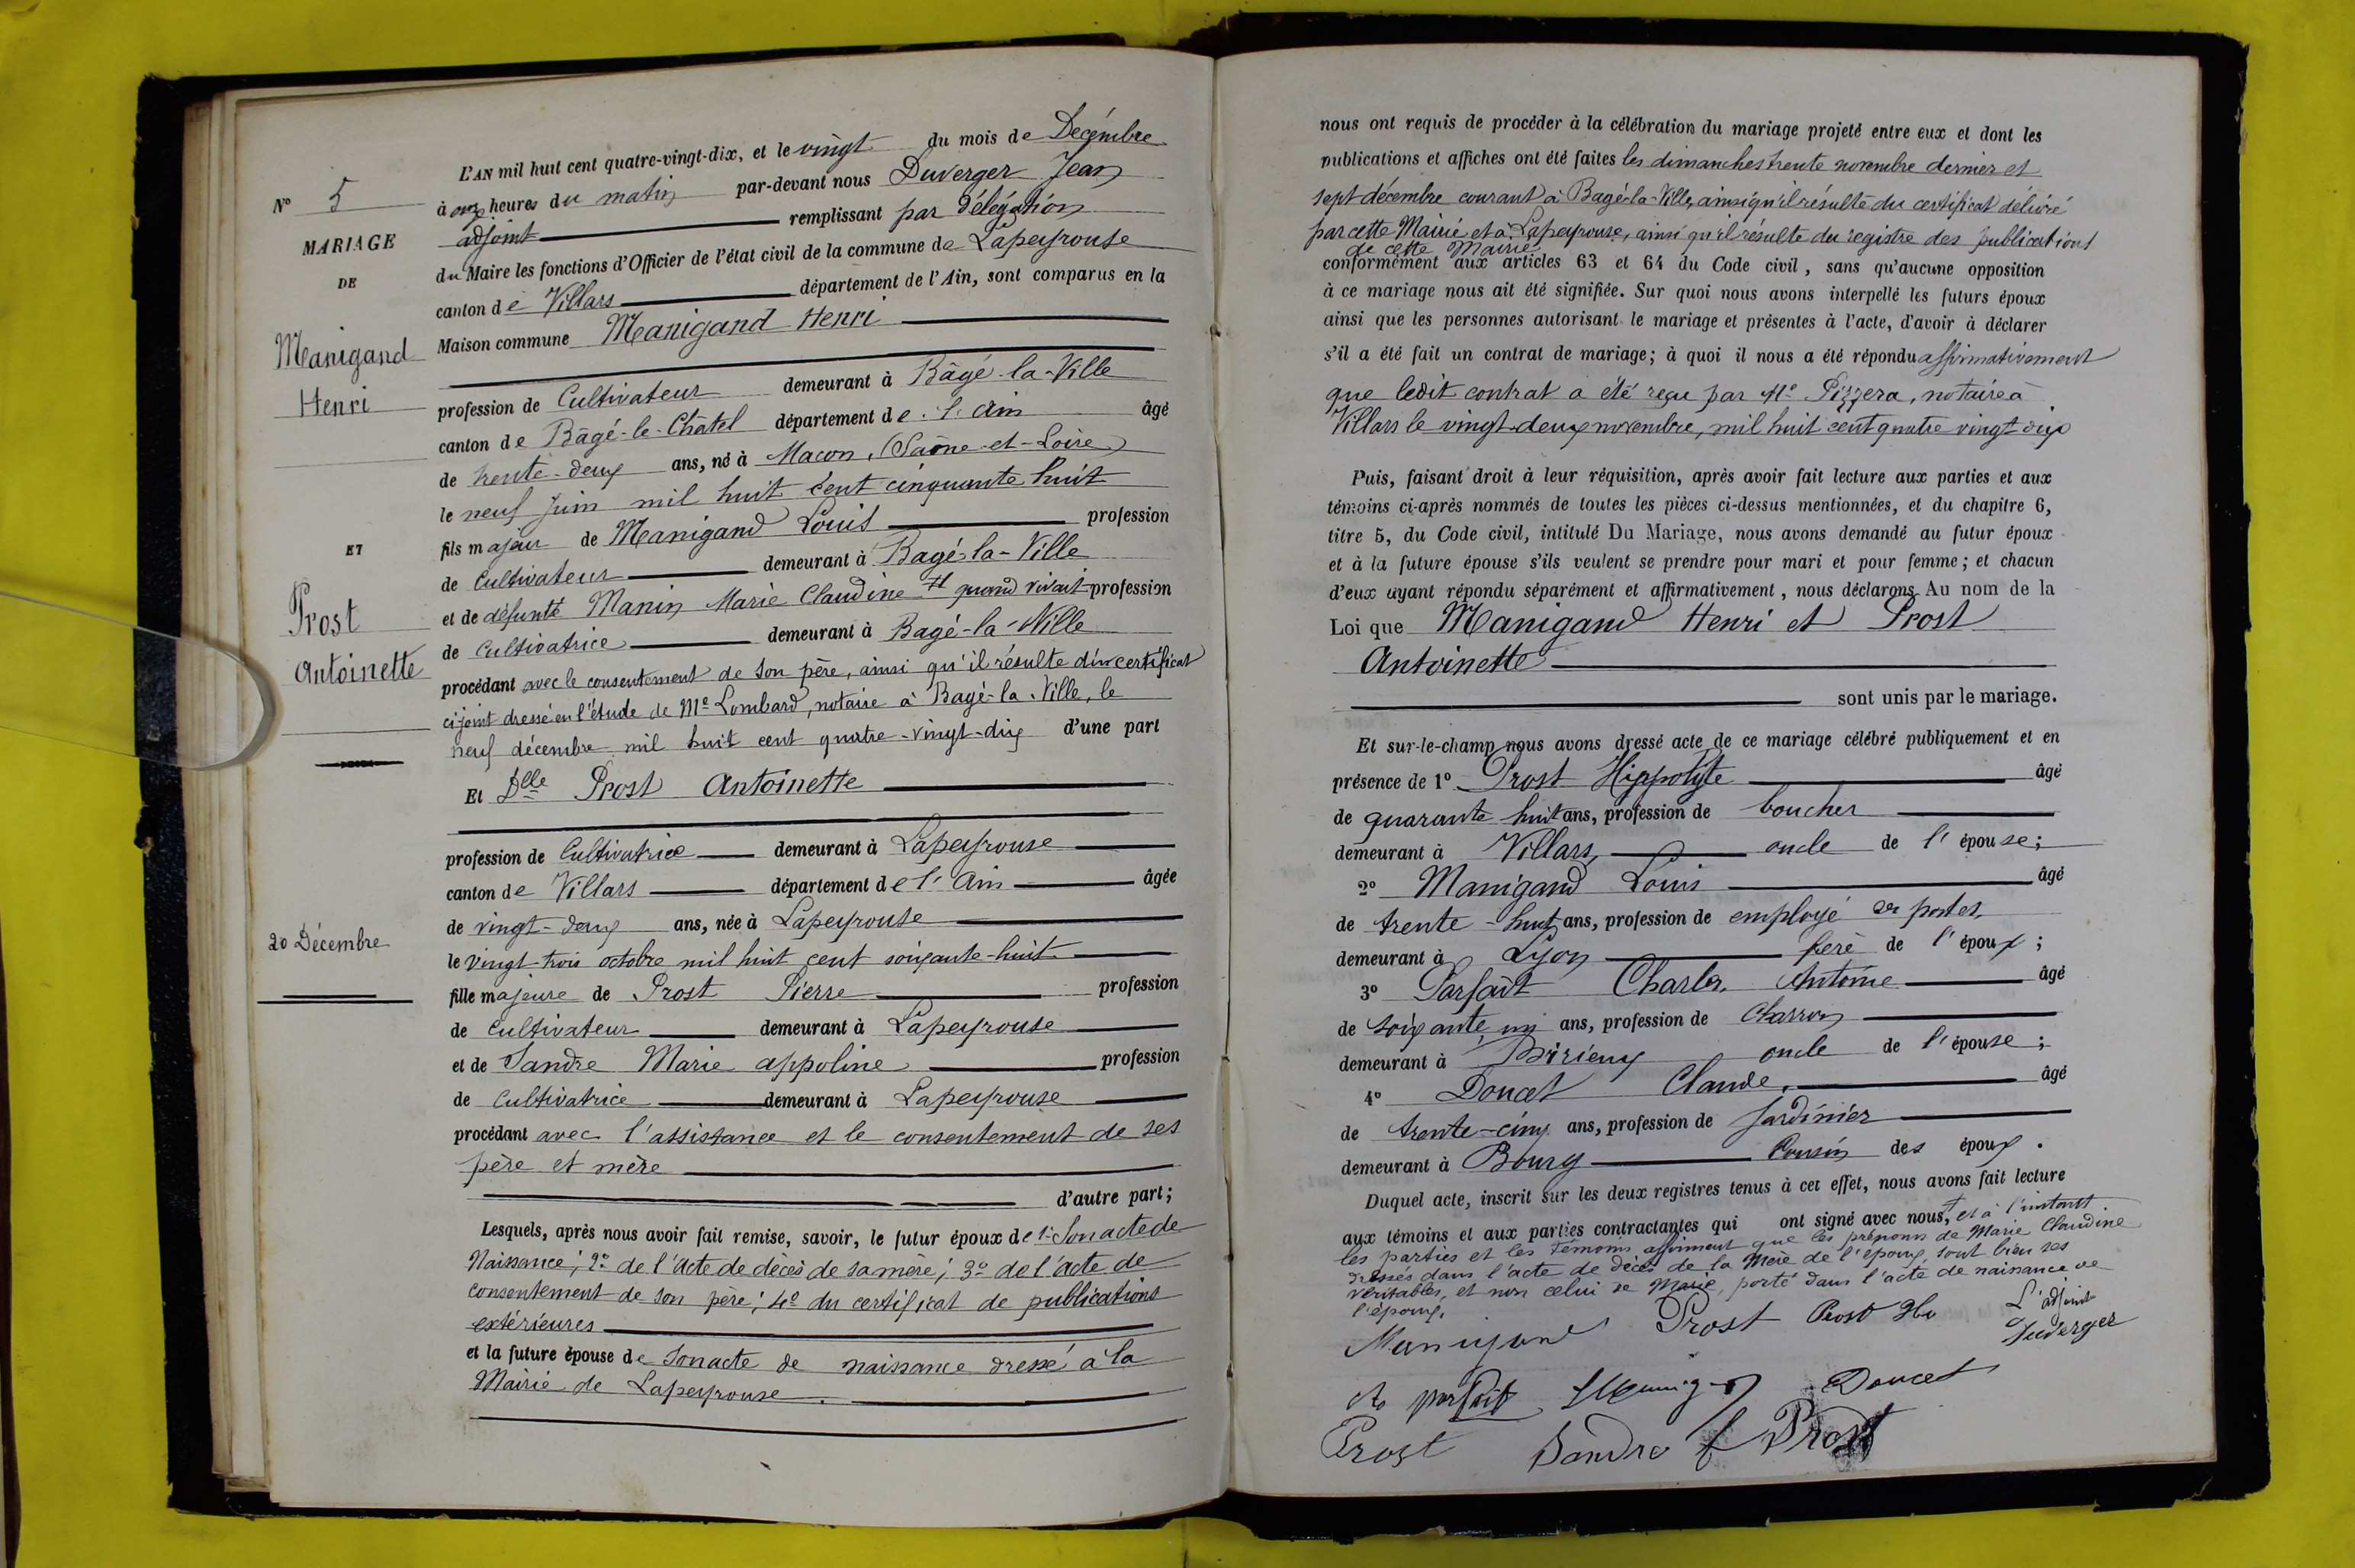 N° 5
MARIAGE
DE
Manigand
Henri
ET
Prost
Antoinette
20 Décembre
L'AN mil huit cent quatre-vingt-dix, et le vingt du mois de Décembre
à onze heures du matin par-devant nous Duverger Jean
adjoint remplissant par délégation
du Maire les fonctions d'Officier de l'état civil de la commune de Lapeyrouse
canton de Villars département de l'Ain, sont comparus en la
Maison commune Manigand Henri
profession de Cultivateur demeurant à Bâgé-la-Ville
canton de Bâgé-le-Châtel département de l'Ain âgé
de trente-deux ans, né à Macon, (Saône-et-Loire)
le neuf Juin mil huit cent cinquante huit
fils majeur de Manigand Louis profession
de Cultivateur demeurant à Bagé-la-Ville
et de défunte Manin Marie Claudine quand vivait profession
de Cultivatrice demeurant à Bagé-la-Ville
procédant avec le consentement de son père, ainsi qu'il résulte d'un certificat
ci joint dressé en l'étude de Me Lombard, notaire à Bagé-la-Ville, le
neuf décembre mil huit cent quatre-vingt-dix d'une part
Et Dlle Prost Antoinette
profession de Cultivatrice demeurant à Lapeyrouse
canton de Villars département de l'Ain âgée
de vingt-deux ans, née à Lapeyrouse
le vingt-trois octobre mil huit cent soixante-huit
fille majeure de Prost Pierre profession
de Cultivateur demeurant à Lapeyrouse
et de Sandre Marie appoline profession
de Cultivatrice demeurant à Lapeyrouse
procédant avec l'assistance et le consentement de ses
père et mère
d'autre part;
Lesquels, après nous avoir fait remise, savoir, le futur époux de 1° Son acte de
Naissance; 2° de l'acte de décès de sa mère; 3° de l'acte de
consentement de son père; 4° du certificat de publications
extérieures
et la future épouse de son acte de naissance dressé à la
Mairie de Lapeyrouse.
nous ont requis de procéder à la célébration du mariage projeté entre eux et dont les
publications et affiches ont été faites les dimanches trente novembre dernier et
sept décembre courant à Bagé-la-Ville, ainsi qu'il résulte du certificat délivré
par cette Mairie et à Lapeyrouse, ainsi qu'il résulte du registre des publications
de cette Mairie
conformément aux articles 63 et 64 du Code civil, sans qu'aucune opposition
à ce mariage nous ait été signifiée. Sur quoi nous avons interpellé les futurs époux
ainsi que les personnes autorisant le mariage et présentes à l'acte, d'avoir à déclarer
s'il a été fait un contrat de mariage; à quoi il nous a été répondu affirmativement
que ledit contrat a été reçu par Me Pizzera, notaire à
Villars le vingt-deux novembre, mil huit cent quatre vingt dix
Puis, faisant droit à leur réquisition, après avoir fait lecture aux parties et aux
témoins ci-après nommés de toutes les pièces ci-dessus mentionnées, et du chapitre 6,
titre 5, du Code civil, intitulé Du Mariage, nous avons demandé au futur époux
et à la future épouse s'ils veulent se prendre pour mari et pour femme; et chacun
d'eux ayant répondu séparément et affirmativement, nous déclarons Au nom de la
Loi que Manigand Henri et Prost
Antoinette
sont unis par le mariage.
Et sur-le-champ nous avons dressé acte de ce mariage célébré publiquement et en
présence de 1° Prost Hippolyte âgé
de quarante huit ans, profession de boucher
demeurant à Villars, oncle de l'épouse;
2° Manigand Louis âgé
de trente-huit ans, profession de employé des postes
demeurant à Lyon frère de l'époux;
3° Parfait Charles Antoine âgé
de soixante un ans, profession de Charron
demeurant à Birieux oncle de l'épouse;
4° Doucet Claude, âgé
de trente-cinq ans, profession de Jardinier
demeurant à Bourg Cousin des époux.
Duquel acte, inscrit sur les deux registres tenus à cet effet, nous avons fait lecture
aux témoins et aux parties contractantes qui ont signé avec nous, et à l'instant
les parties et les témoins affirment que les prénoms de Marie Claudine
dressés dans l'acte de décès de la mère de l'époux, sont bien ses
véritables, et non celui de Marie, porté dans l'acte de naissance de
l'époux.
Manigand Prost Prost L'adjoint
Duverger
parfait Doucet
Prost Sandre f Prost